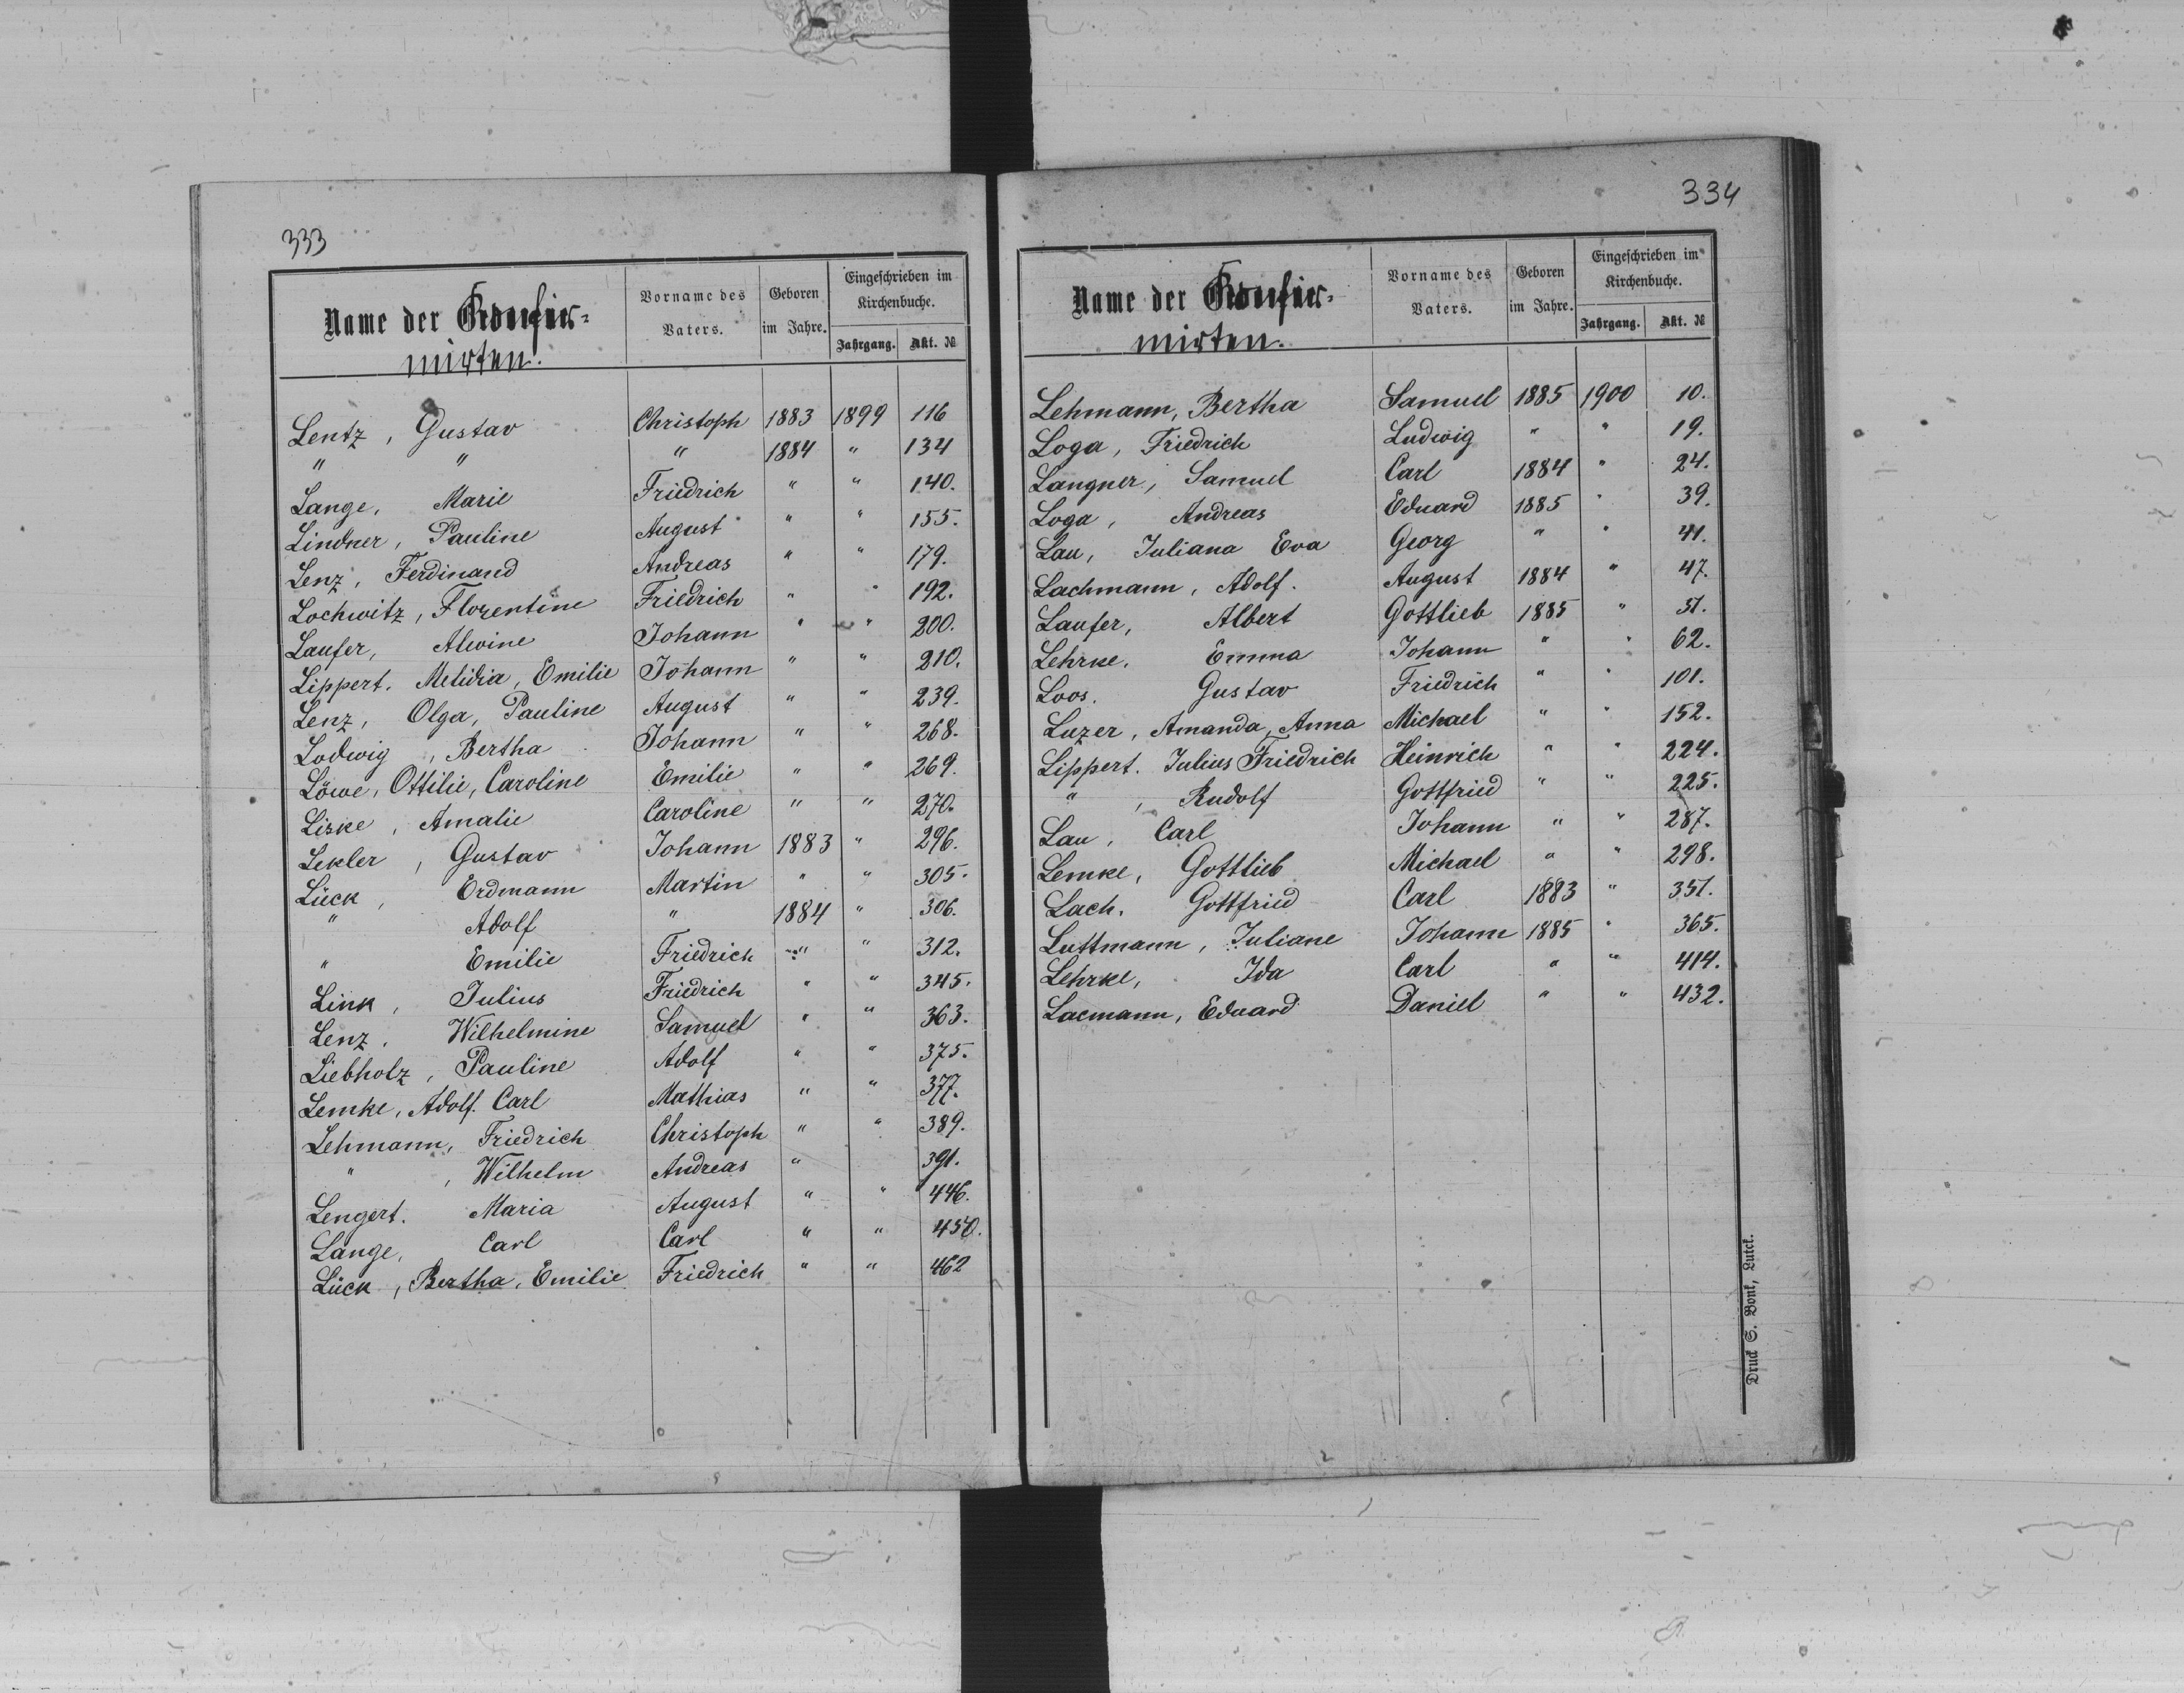 333
Name der Konfir-
mirten.
Vorname des
Vaters.
Geboren
im Jahre.
Eingeschrieben im
Kirchenbuche.
Jahrgang. Akt. №
Lentz, Gustav Christoph 1883 1899 116
" " " 1884 " 134
Lange, Marie Friedrich " " 140.
Lindner, Pauline August " " 155.
Lenz, Ferdinand Andreas " " 179.
Lochwitz, Florentine Friedrich " " 192.
Laufer, Alwine Johann " " 200.
Lippert. Melidia, Emilie Johann " " 210.
Lenz, Olga, Pauline August " " 239.
Lodwig, Bertha Johann " " 268.
Löwe, Ottilie, Caroline Emilie " " 269.
Liske, Amalie Caroline " " 270.
Lekler, Gustav Johann 1883 " 296.
Lück, Erdmann Martin " " 305.
" Adolf " 1884 " 306.
" Emilie Friedrich " " 312.
Link, Julius Friedrich " " 345.
Lenz, Wilhelmine Samuel " " 363.
Liebholz, Pauline Adolf " " 375.
Lemke, Adolf. Carl Mathias " " 377.
Lehmann, Friedrich Christoph " " 389.
" , Wilhelm Andreas " 391.
Lengert. Maria August " " 446.
Lange, Carl Carl " " 450.
Lück, Bertha, Emilie Friedrich " " 462
334
Name der Konfir-
mirten.
Vorname des
Vaters.
Geboren
im Jahre.
Eingeschrieben im
Kirchenbuche.
Jahrgang. Akt. №
Lehmann, Bertha Samuel 1885 1900 10.
Loga, Friedrich Ludwig " " 19.
Langner, Samuel Carl 1884 " 24.
Loga, Andreas Eduard 1885 " 39.
Lau, Juliana Eva Georg " " 41.
Lachmann, Adolf. August 1884 " 47.
Laufer, Albert Gottlieb 1885 " 51.
Lehrke, Emma Johann " " 62.
Loos. Gustav Friedrich " " 101.
Luzer, Amanda, Anna Michael " " 152.
Lippert. Julius Friedrich Heinrich " " 224.
" , Rudolf Gottfried " " 225.
Lau, Carl Johann " " 287.
Lemke, Gottlieb Michael " " 298.
Lach. Gottfried Carl 1883 " 351.
Luttmann, Juliane Johann 1885 " 365.
Lehrke, Ida Carl " " 414.
Lacmann, Eduard Daniel " " 432.
Druck S. Bonk, Lutck.